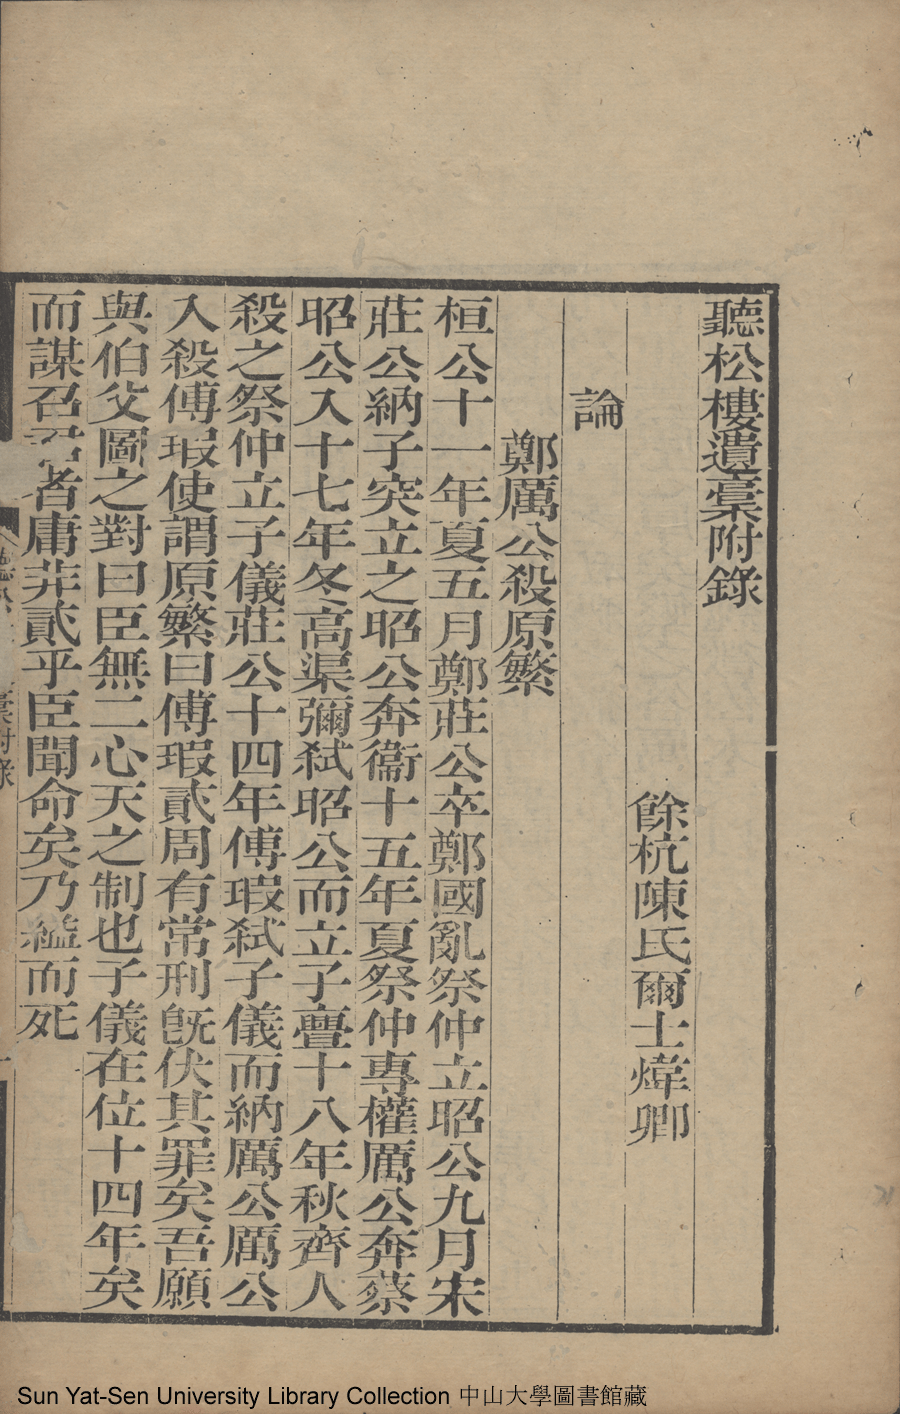 聽松樓遺稾附錄
餘杭陳氏爾士煒卿
論
鄭厲公殺原繁
桓公十一年夏五月鄭莊公卒鄭國亂祭仲立昭公九月宋
莊公納子突立之昭公奔衞十五年夏祭仲專權厲公奔蔡
昭公入十七年冬高渠彌弒昭公而立子亹十八年秋齊人
殺之祭仲立子儀莊公十四年傅瑕弒子儀而納厲公厲公
入殺傅瑕使謂原繁曰傅瑕貳周有常刑旣伏其罪矣吾願
與伯父圖之對曰臣無二心天之制也子儀在位十四年矣
而謀召君者庸非貳乎臣聞命矣乃縊而死
Sun Yat-Sen University Library Collection 中山大學圖書館藏